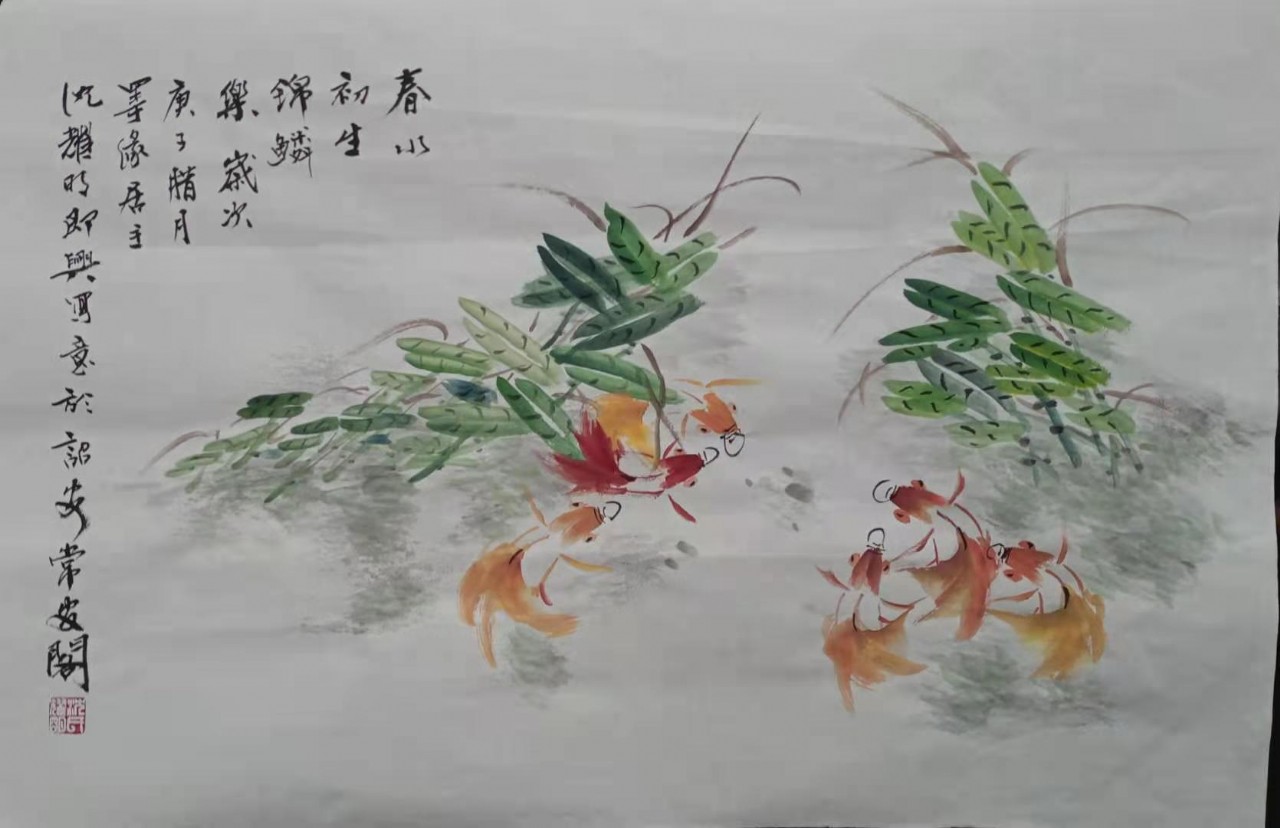 春水
初生
錦鱗
樂歲次
庚子腊月
墨緣居主
沈耀明即興寫意於詔安常安閣